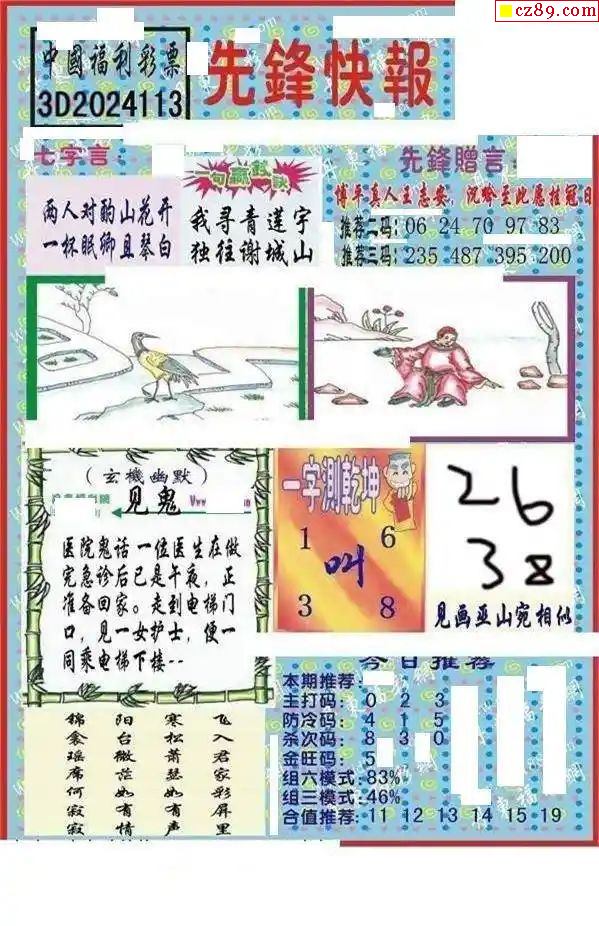 cz89.com
中國福利彩票
3D2024113
先鋒快報
七字言:
两人对酌山花开
一杯眠卿且琴白
一句赢钱诀
我寻青莲宇
独往谢城山
先鋒贈言:
博平真人王志安，沉吟至此愿挂冠日
推荐二码: 06 24 70 97 83
推荐三码: 235 487 395 200
(玄機幽默)
见鬼
医院鬼话 一位医生在做
完急诊后已是午夜，正
准备回家。走到电梯门
口，见一女护士，便一
同乘电梯下楼--
一字測乾坤
1 6
叫
3 8
26
38
见画亚山宛相似
今日推荐
本期推荐:
主打码: 0 2 3
防冷码: 4 1 5
杀次码: 8 3 0
金旺码: 5
组六模式: 83%
组三模式: 46%
合值推荐: 11 12 13 14 15 19
飞入君家彩屏里
寒松萧瑟如有声
阳台微茫如有情
锦衾瑶席何寂寂